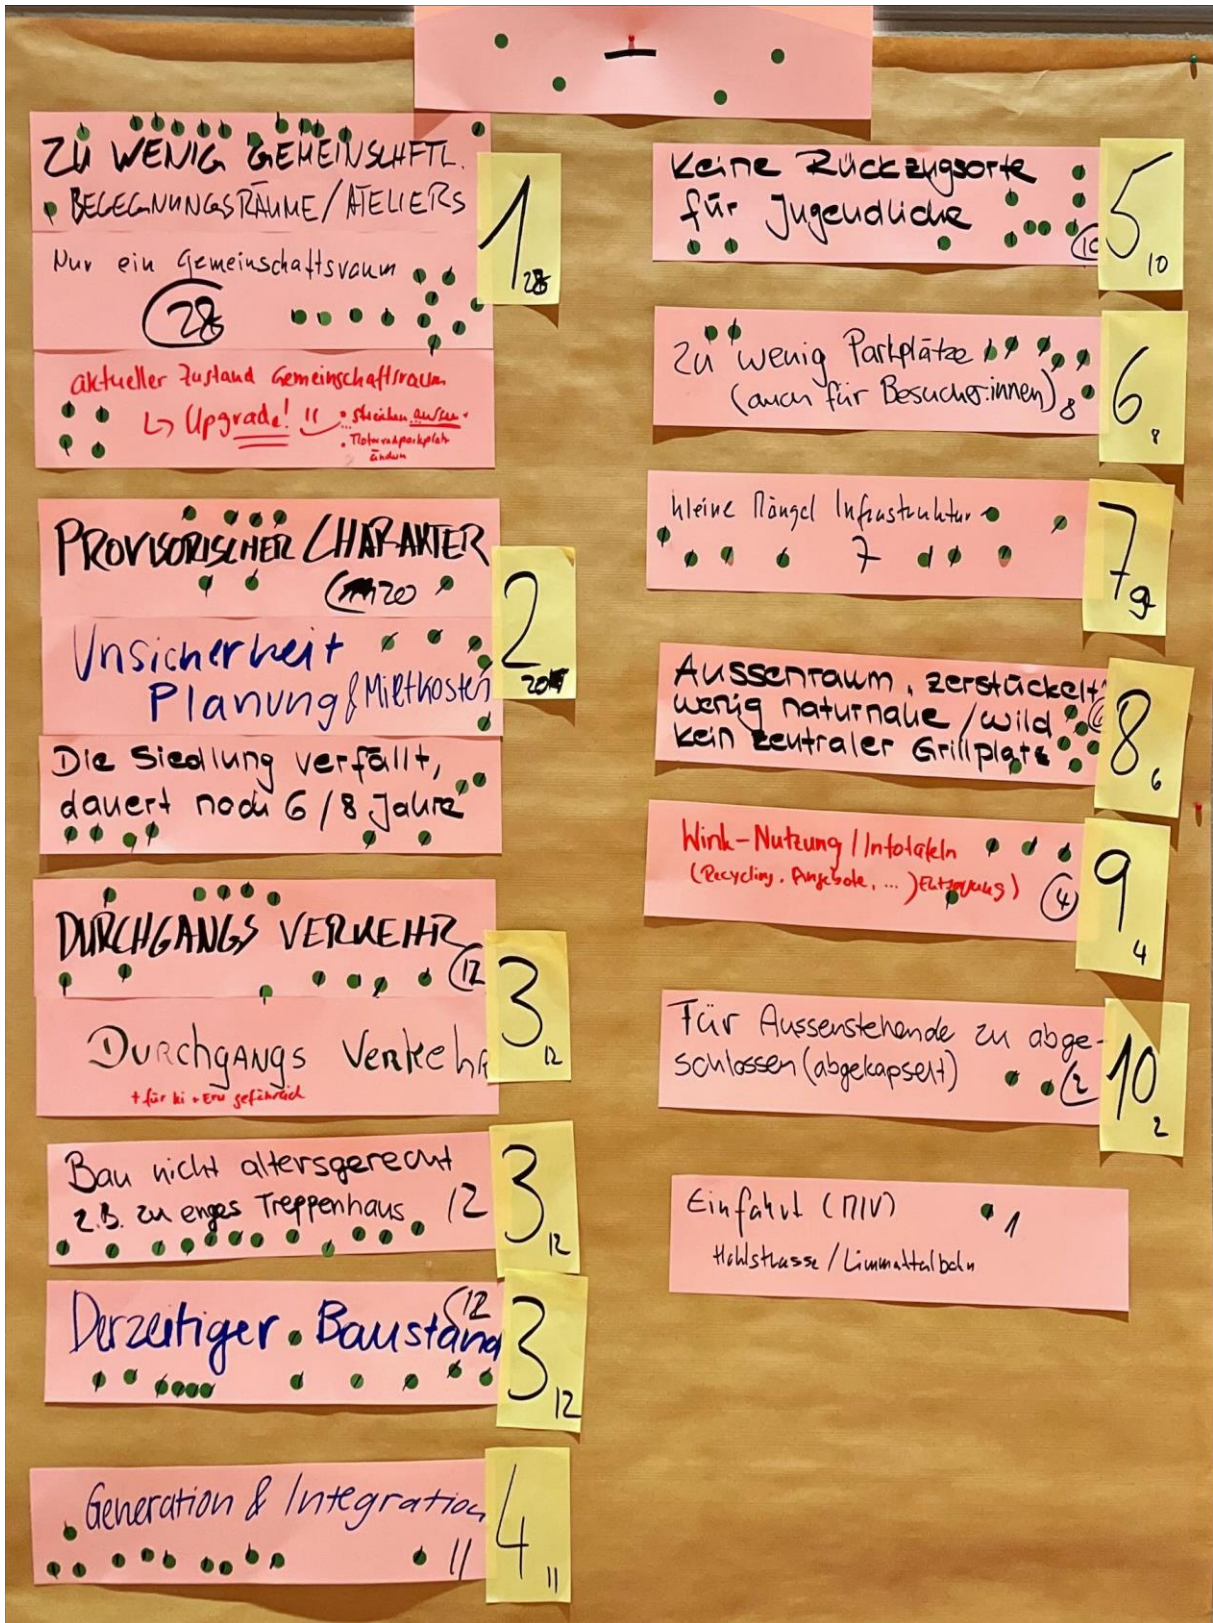 –
ZU WENIG GEMEINSCHFTL.
BEGEGNUNGSRÄUME/ATELIERS
1
28
Nur ein Gemeinschaftsraum
28
aktueller Zustand Gemeinschaftsraum
↳ Upgrade! !!
• streichen aussen
• Motorradparkplatz
ändern
PROVISORISCHER CHARAKTER
20
2
20
Unsicherheit
Planung & Mietkosten
Die Siedlung verfällt,
dauert noch 6/8 Jahre
DURCHGANGS VERKEHR
12
3
12
DURCHGANGS Verkehr
+ für Ki + Erw gefährlich
Bau nicht altersgerecht
z.B. zu enges Treppenhaus
12
3
12
Derzeitiger Baustand
12
3
12
Generation & Integration
11
4
11
Keine Rückzugsorte
für Jugendliche
10
5
10
Zu wenig Parkplätze
(auch für Besucher:innen)
8
6
8
kleine Mängel Infrastruktur
7
7
9
Aussenraum, zerstückelt
wenig naturnahe/wild
kein zentraler Grillplatz
8
6
Wink-Nutzung/Infotafeln
(Recycling, Angebote, ...) Entsorgung)
4
9
4
Für Aussenstehende zu abge-
schlossen (abgekapselt)
2
10
2
Einfahrt (MIV)
1
Hohlstrasse/Limmattalbahn